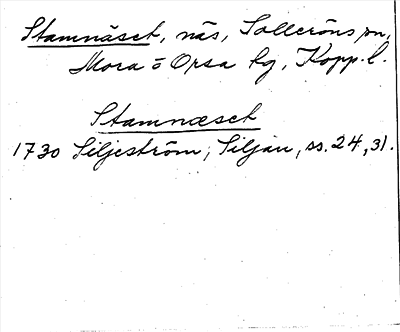 Stamnäset, näs, Solleröns sn,
Mora o Orsa tg, Kopp. l.
Stamnæset
1730 Siljeström, Siljan, ss. 24, 31.